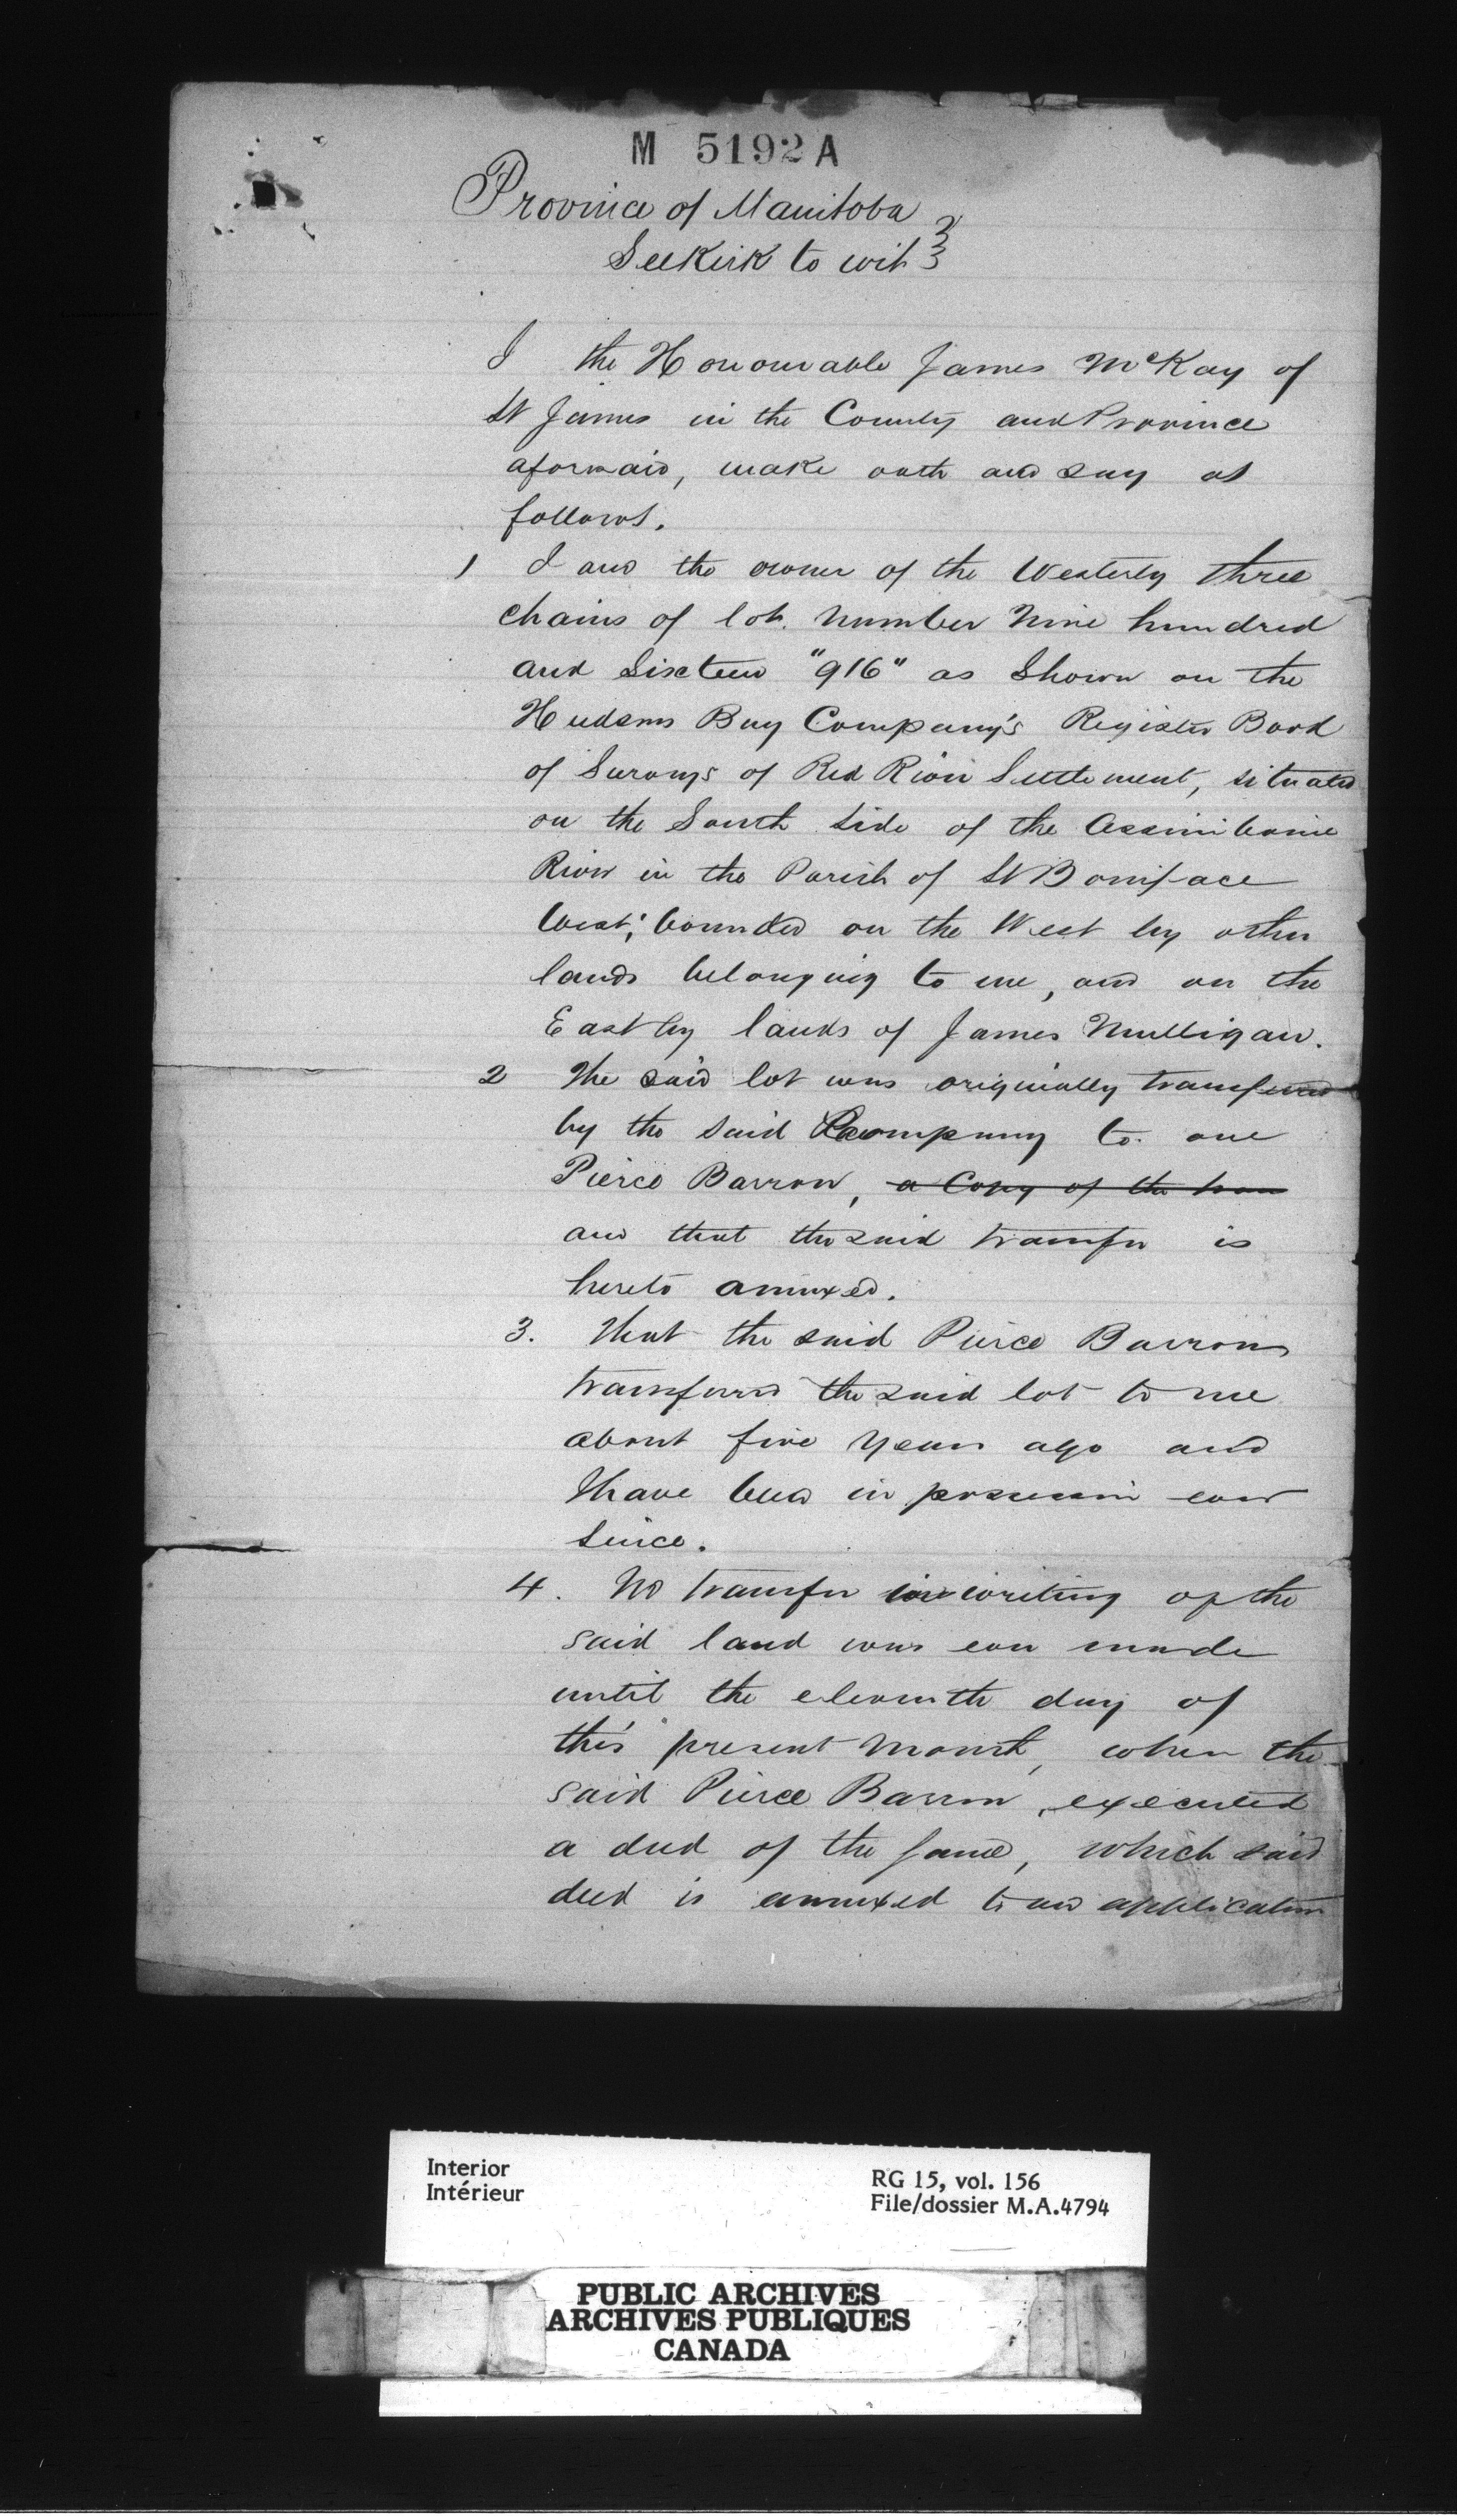 M 5192 A
Province of Manitoba
Selkirk to wit }
I the Honourable James McKay of
St James in the County and Province
aforesaid, make oath and say as
follows.
1 I am the owner of the Westerly three
chains of lot number Nine hundred
and Sixteen "916" as Shown on the
Hudsons Bay Company's Register Book
of Surveys of Red River Settlement, situated
on the South Side of the Assiniboine
River in the Parish of St Boniface
West; bounded on the West by other
lands belonging to me, and on the
East by lands of James Mulligan.
2 The said lot was originally transferred
by the said Company to one
Pierce Barron, a Copy of the tran
and that the said transfer is
hereto annexed.
3. That the said Pierce Barron
transferred the said lot to me
about five years ago and
I have been in possession ever
since.
4. No transfer in writing of the
said land was ever made
until the eleventh day of
this present Month, when the
said Pierce Barron, executed
a deed of the same, which said
deed is annexed to an application
Interior
Intérieur
RG 15, vol. 156
File/dossier M.A.4794
PUBLIC ARCHIVES
ARCHIVES PUBLIQUES
CANADA